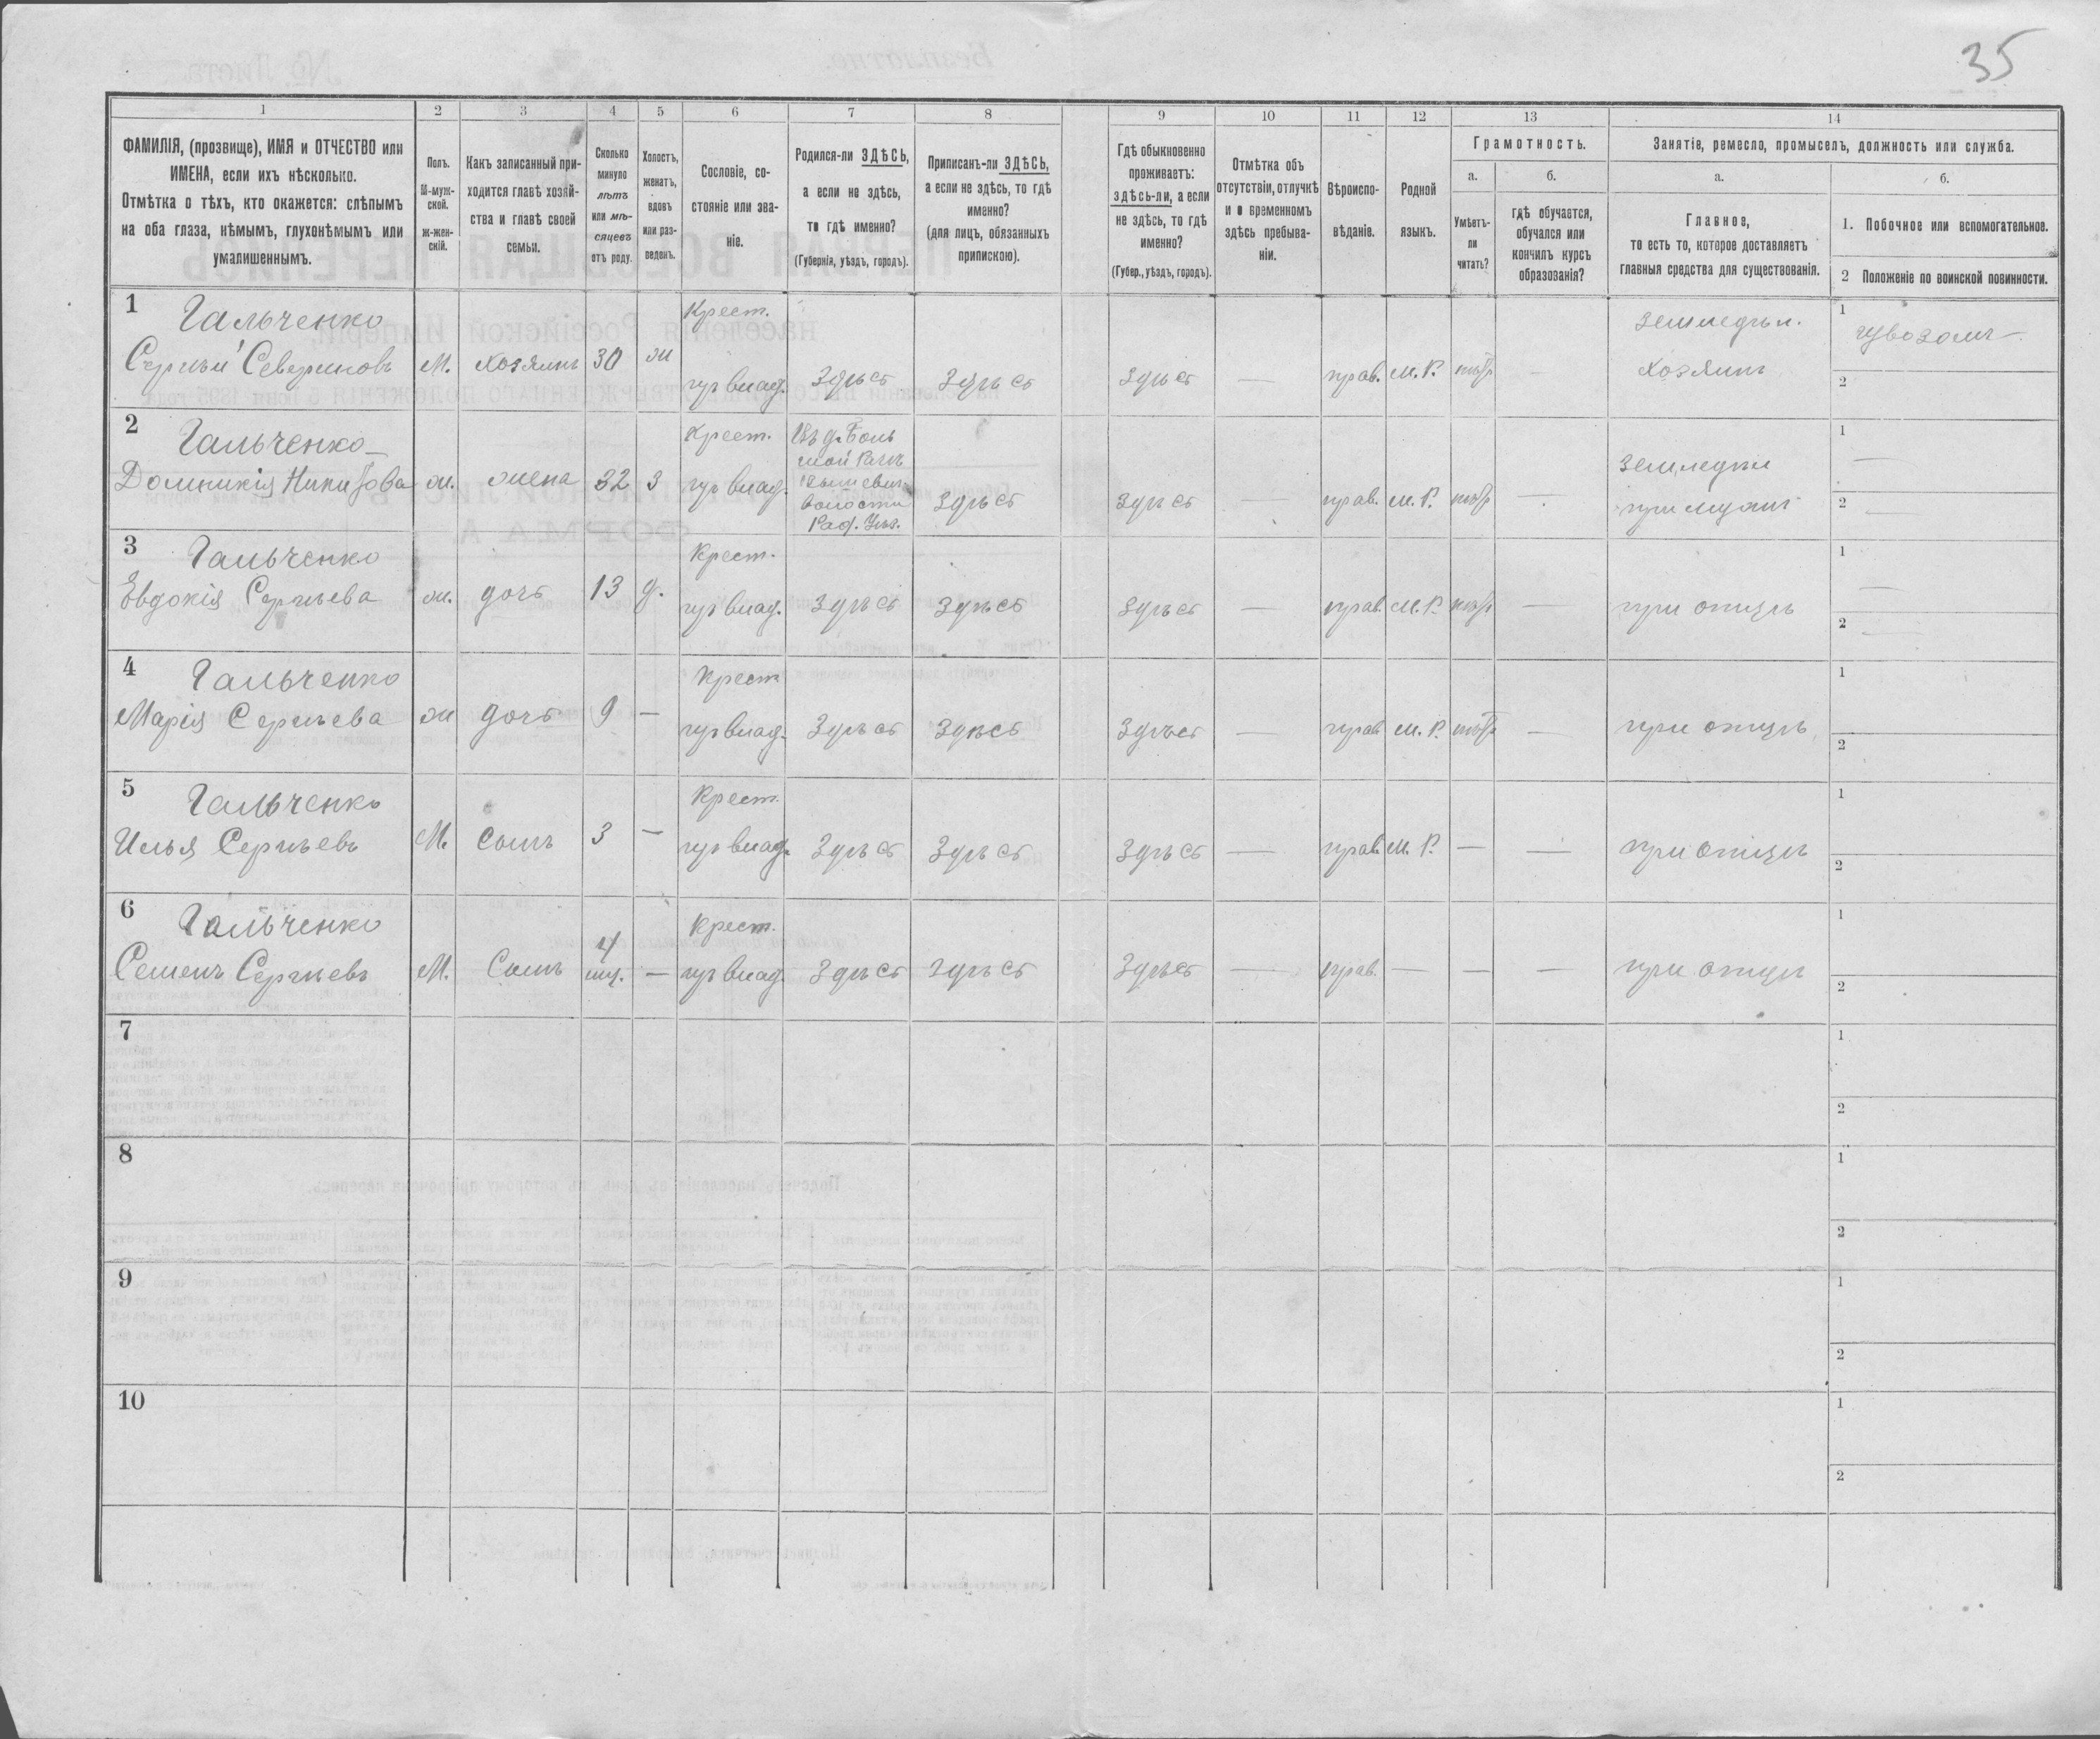 35
1
2
3
4
5
6
7
8
9
10
11
12
13
14
ФАМИЛІЯ, (прозвище), ИМЯ и ОТЧЕСТВО или
ИМЕНА, если ихъ нѣсколько.
Отмѣтка о тѣхъ, кто окажется: слѣпымъ
на оба глаза, нѣмымъ, глухонѣмымъ или
умалишеннымъ.
Полъ.
М-муж-
ской.
ж-жен-
скій.
Какъ записанный при-
ходится главѣ хозяй-
ства и главѣ своей
семьи.
Сколько
минуло
лѣтъ
или мѣ-
сяцевъ
отъ роду.
Холостъ,
женатъ,
вдовъ
или раз-
веденъ.
Сословіе, со-
стояніе или зва-
ніе.
Родился-ли ЗДѢСЬ,
а если не здѣсь,
то гдѣ именно?
(Губернія, уѣздъ, городъ).
Приписанъ-ли ЗДѢСЬ,
а если не здѣсь, то гдѣ
именно?
(для лицъ, обязанныхъ
припискою).
Гдѣ обыкновенно
проживаетъ:
здѣсь-ли, а если
не здѣсь, то гдѣ
именно?
(Губер., уѣздъ, городъ).
Отмѣтка объ
отсутствіи, отлучкѣ
и о временномъ
здѣсь пребыва-
ніи.
Вѣроиспо-
вѣданіе.
Родной
языкъ.
Грамотность.
а.
Умѣетъ-
ли
читать?
б.
гдѣ обучается,
обучался или
кончилъ курсъ
образованія?
Занятіе, ремесло, промыселъ, должность или служба.
а.
Главное,
то есть то, которое доставляетъ
главныя средства для существованія.
б.
1. Побочное или вспомогательное.
2 Положеніе по воинской повинности.
1 Гальченко Крест. земледѣл. 1 извозомъ
Сергѣй Севериновъ М. хозяинъ 30 ж влад. Здѣсь Здѣсь Здѣсь — прав. М. Р. — хозяинъ 2
2 Гальченко Крест. Изъ д. Боль
шой Рачи
волости
Рад. Уѣз.
Домникія Никифорова ж. жена 32 з влад. Здѣсь Здѣсь — прав. М. Р. — земледѣл
при мужѣ
1 —
2 —
3 Гальченко Крест. 1 —
Евдокія Сергѣева ж. дочь 13 д. влад. Здѣсь Здѣсь Здѣсь — прав. М. Р. — при отцѣ 2 —
4 Гальченко Крест 1
Марія Сергѣева ж дочь 9 — влад. Здѣсь Здѣсь Здѣсь — прав М. Р. — при отцѣ 2
5 Гальченко Крест. 1
Илья Сергѣевъ М. Сынъ 3 — влад. Здѣсь Здѣсь Здѣсь — прав. М. Р. — — при отцѣ 2
6 Гальченко Крест. 1
Семенъ Сергѣевъ М. Сынъ 4 — влад. Здѣсь Здѣсь Здѣсь — прав. — — — при отцѣ 2
7 1
2
8 1
2
9 1
2
10 1
2